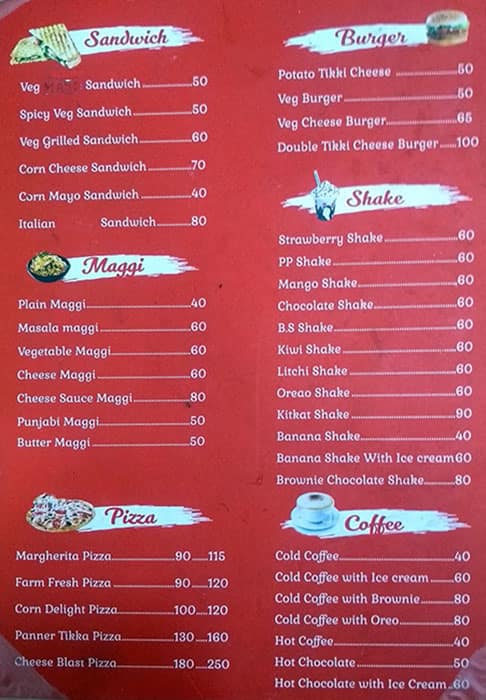 Sandwich
Veg Sandwich 50
Spicy Veg Sandwich 50
Veg Grilled Sandwich 60
Corn Cheese Sandwich 70
Corn Mayo Sandwich 40
Italian Sandwich 80
Maggi
Plain Maggi 40
Masala maggi 60
Vegetable Maggi 60
Cheese Maggi 60
Cheese Sauce Maggi 80
Punjabi Maggi 50
Butter Maggi 50
Pizza
Margherita Pizza 90 115
Farm Fresh Pizza 90 120
Corn Delight Pizza 100 120
Panner Tikka Pizza 130 160
Cheese Blast Pizza 180 250
Burger
Potato Tikki Cheese 50
Veg Burger 50
Veg Cheese Burger 65
Double Tikki Cheese Burger 100
Shake
Strawberry Shake 60
PP Shake 60
Mango Shake 60
Chocolate Shake 60
B.S Shake 60
Kiwi Shake 60
Litchi Shake 60
Oreao Shake 60
Kitkat Shake 90
Banana Shake 40
Banana Shake With Ice cream 60
Brownie Chocolate Shake 80
Coffee
Cold Coffee 40
Cold Coffee with Ice cream 60
Cold Coffee with Brownie 80
Cold Coffee with Oreo 80
Hot Coffee 40
Hot Chocolate 50
Hot Chocolate with Ice Cream 60